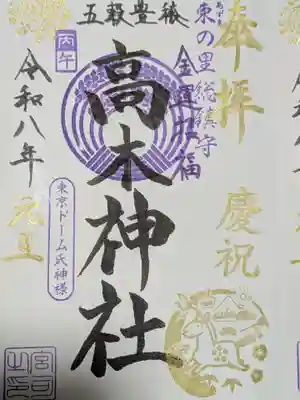 五穀豊穣
奉拝
慶祝
東の里総鎮守
金運招福
高木神社
丙午
令和八年
元旦
東京ドーム氏神様